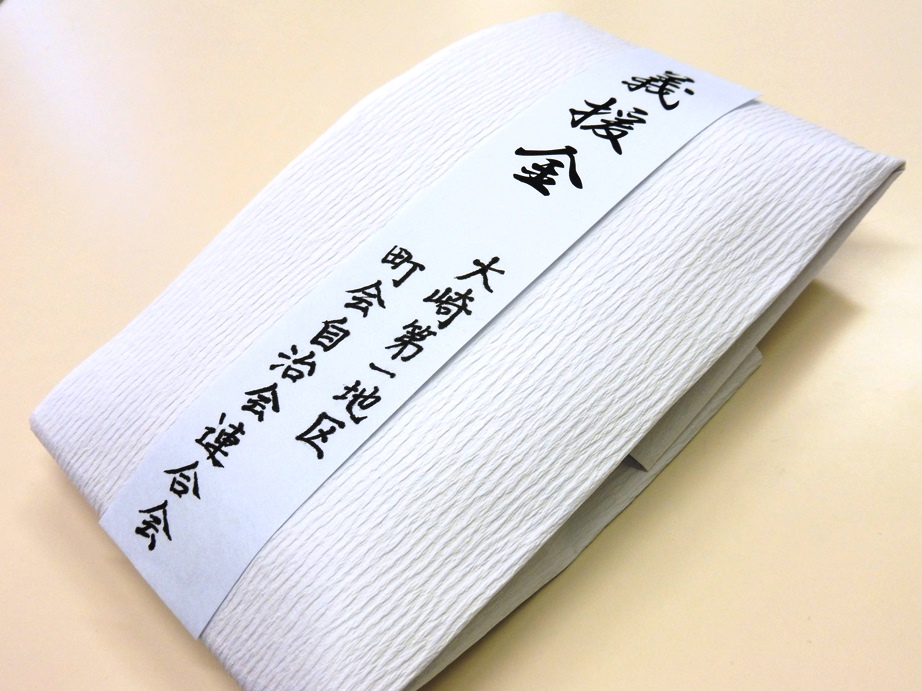 義援金
大崎第一地区
町会自治会連合会